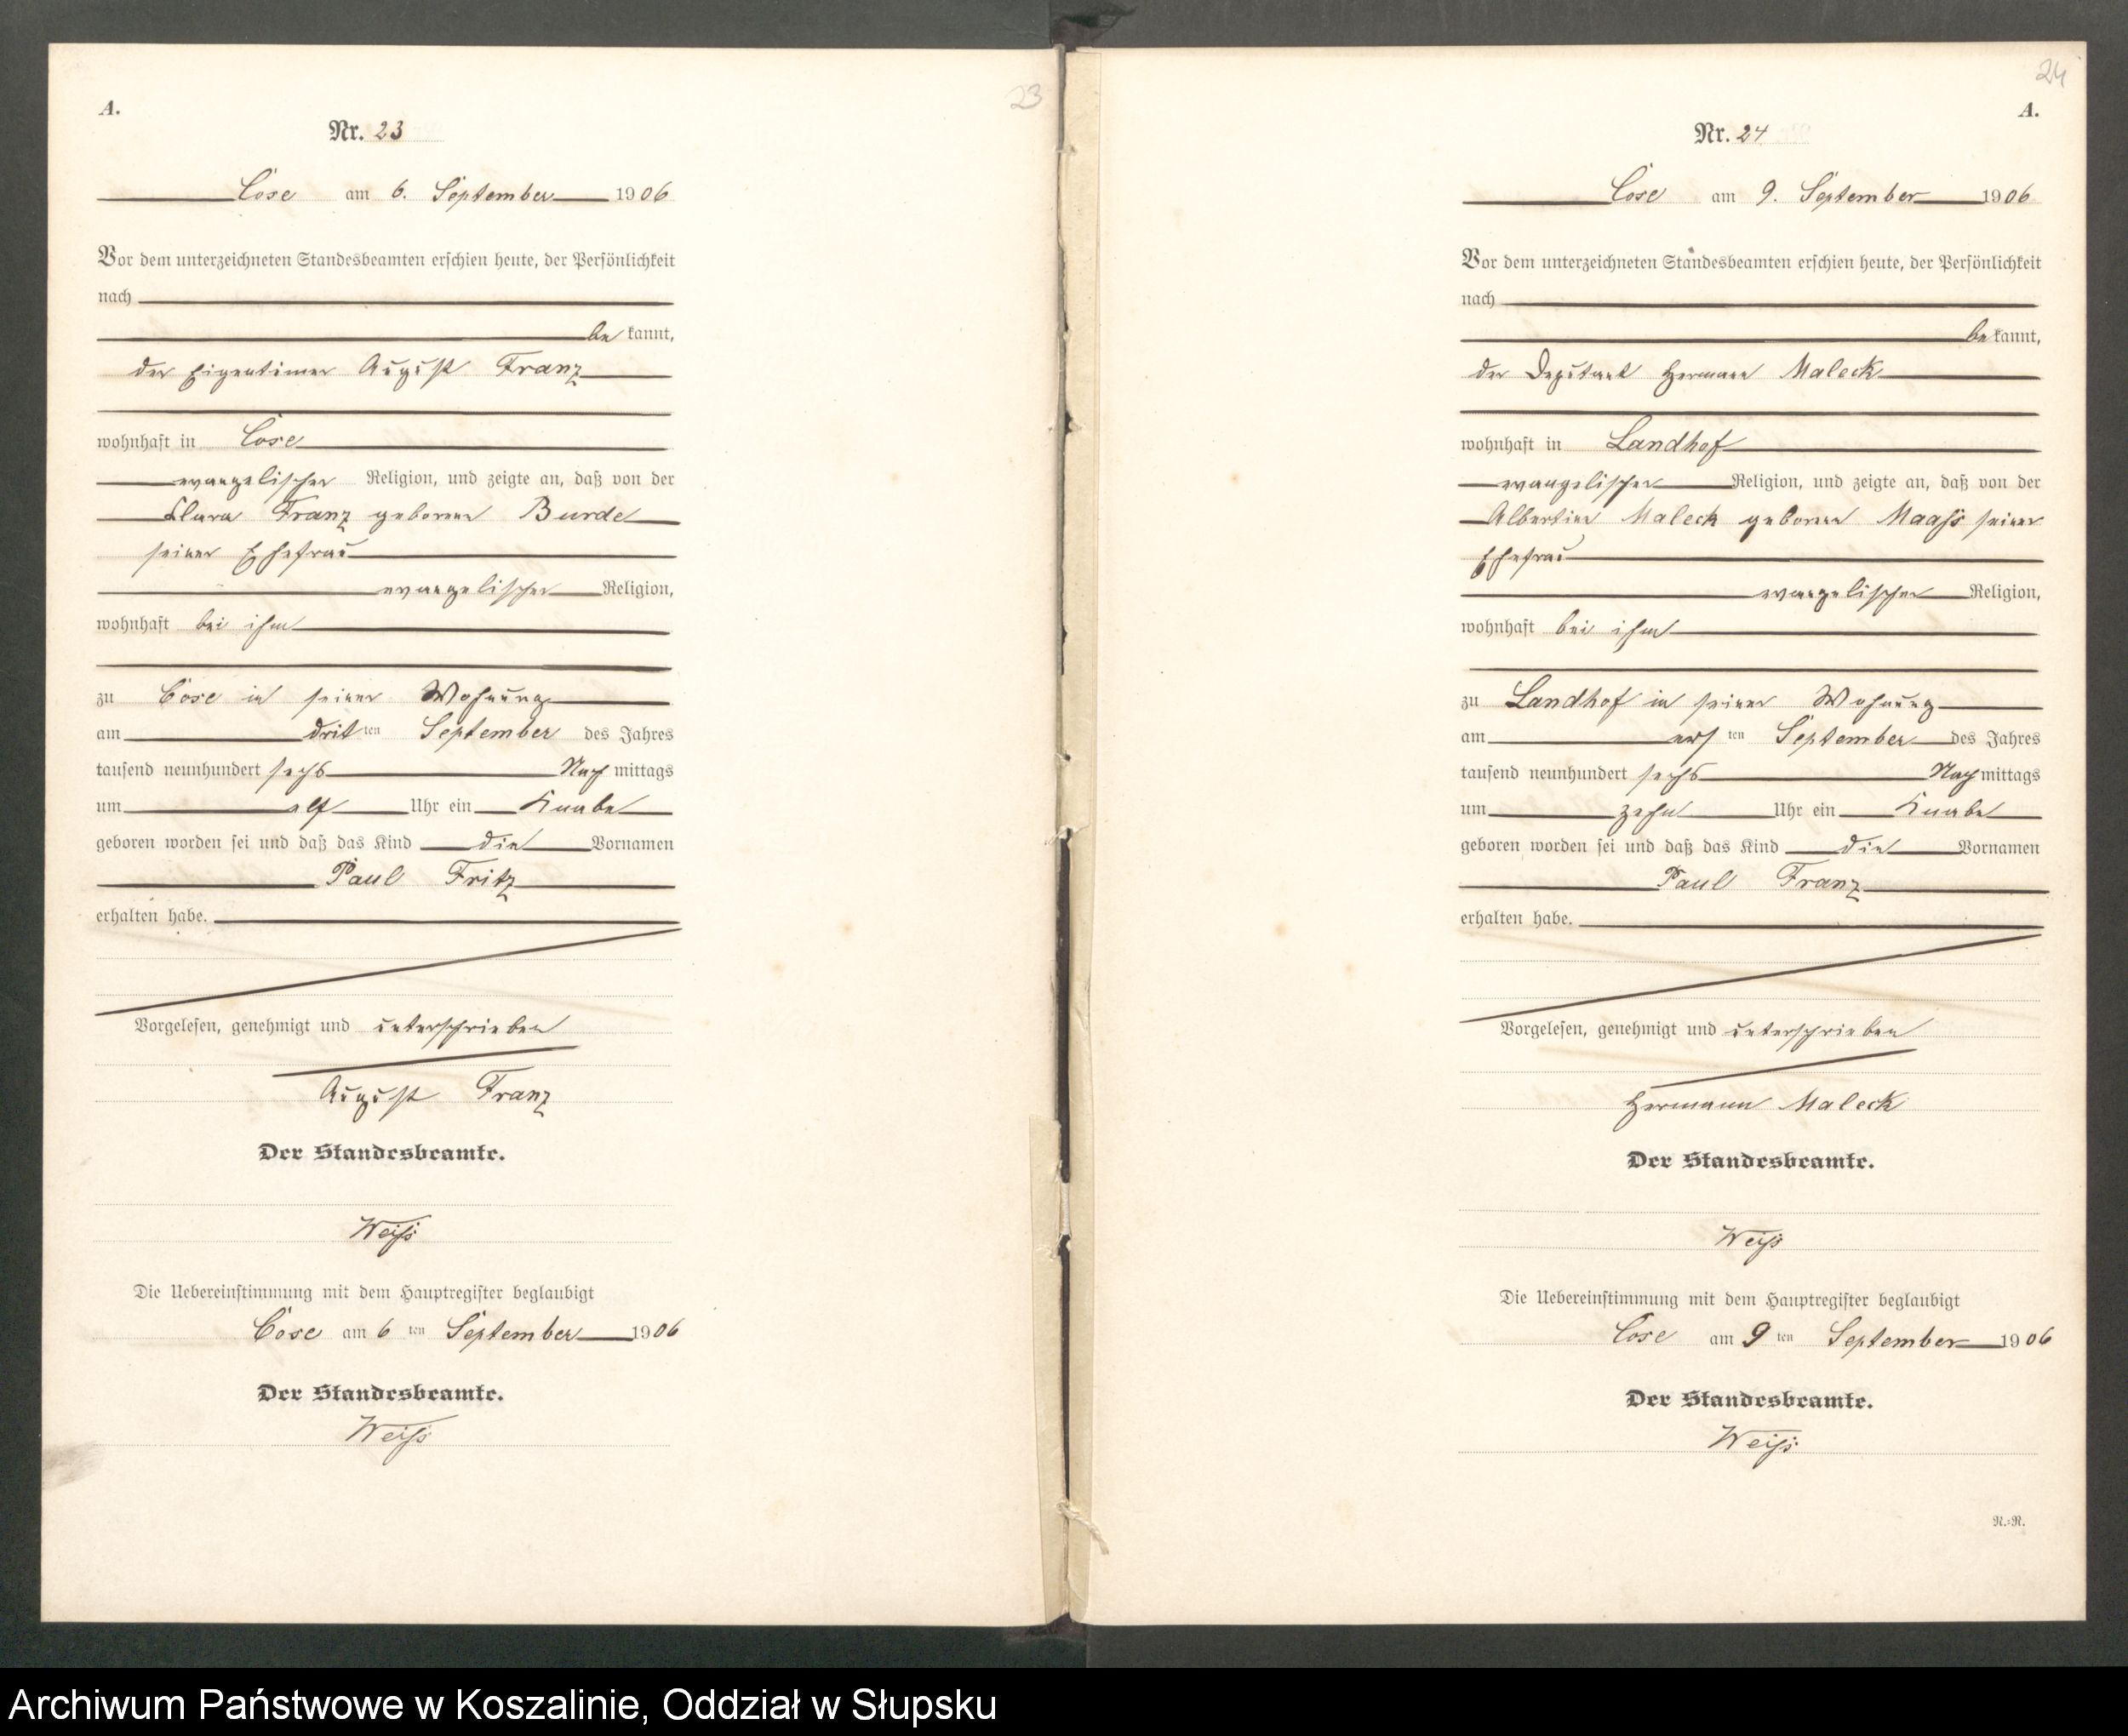 23
A.
Nr. 23
Cose am 6. September 1906
Vor dem unterzeichneten Standesbeamten erschien heute, der Persönlichkeit
nach
be kannt,
der Eigentümer August Franz
wohnhaft in Cose
evangelischer Religion, und zeigte an, daß von der
Clara Franz geborenen Burde
seiner Ehefrau
evangelischer Religion,
wohnhaft bei ihm
zu Cose in seiner Wohnung
am dritten September des Jahres
tausend neunhundert sechs Nachmittags
um elf Uhr ein Knabe
geboren worden sei und daß das Kind die Vornamen
Paul Fritz
erhalten habe.
Vorgelesen, genehmigt und unterschrieben
August Franz
Der Standesbeamte.
Weiß
Die Uebereinstimmung mit dem Hauptregister beglaubigt
Cose am 6 ten September 1906
Der Standesbeamte.
Weiß
24
A.
Nr. 24
Cose am 9. September 1906
Vor dem unterzeichneten Standesbeamten erschien heute, der Persönlichkeit
nach
bekannt,
der Deputant Hermann Maleck
wohnhaft in Landhof
evangelischer Religion, und zeigte an, daß von der
Albertine Maleck geborene Maaß seiner
Ehefrau
evangelischer Religion,
wohnhaft bei ihm
zu Landhof in seiner Wohnung
am ersten September des Jahres
tausend neunhundert sechs Nachmittags
um zehn Uhr ein Knabe
geboren worden sei und daß das Kind die Vornamen
Paul Franz
erhalten habe.
Vorgelesen, genehmigt und unterschrieben
Hermann Maleck
Der Standesbeamte.
Weiß
Die Uebereinstimmung mit dem Hauptregister beglaubigt
Cose am 9 ten September 1906
Der Standesbeamte.
Weiß
R.=R.
Archiwum Państwowe w Koszalinie, Oddział w Słupsku